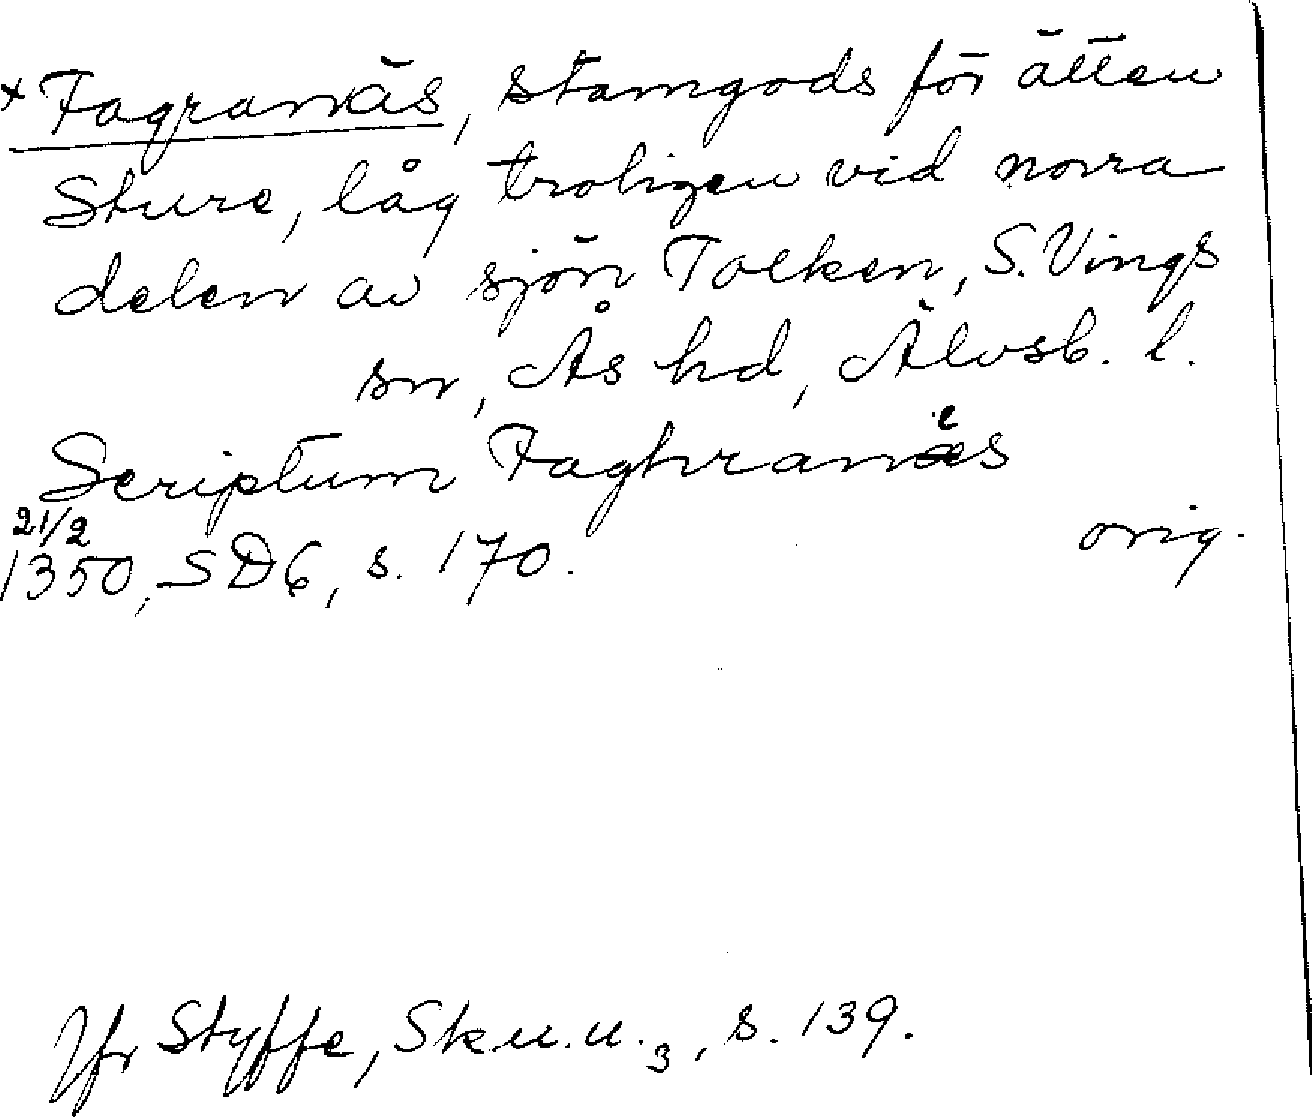 + Fagranäs, stamgods för ätten
Sture, låg troligen vid norra
delen av sjön Tolken, S. Vings
sn, Ås hd, Älvsb. l.
Scriptum Faghranes
21/2
1350, SD6, s. 170. orig.
Jfr Styffe, Sk.u.u. 3, s. 139.